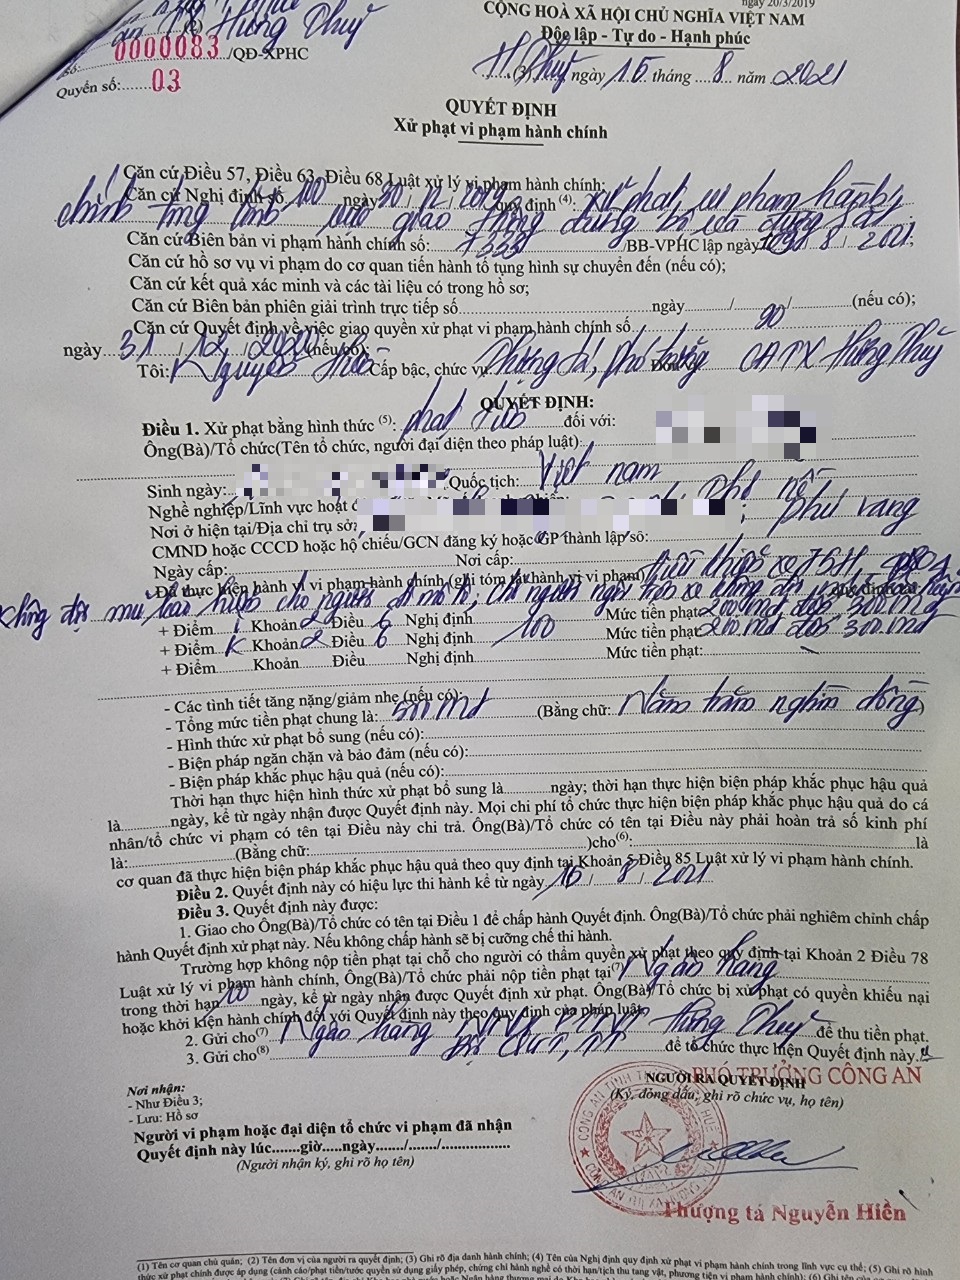 ngày 20/3/2019
CỘNG HOÀ XÃ HỘI CHỦ NGHĨA VIỆT NAM
Độc lập - Tự do - Hạnh phúc
CA TX Hương Thuỷ
Số: 0000083 /QĐ-XPHC
Quyển số:.......03
H Thuỷ (3) ngày 15 tháng 8 năm 2021
QUYẾT ĐỊNH
Xử phạt vi phạm hành chính
Căn cứ Điều 57, Điều 63, Điều 68 Luật xử lý vi phạm hành chính;
Căn cứ Nghị định số 100 ngày 30/12/2019 quy định (4): xử phạt vi phạm hành
chính trong lĩnh vực giao thông đường bộ và đường sắt
Căn cứ Biên bản vi phạm hành chính số: /BB-VPHC lập ngày 8/2021;
Căn cứ hồ sơ vụ vi phạm do cơ quan tiến hành tố tụng hình sự chuyển đến (nếu có);
Căn cứ kết quả xác minh và các tài liệu có trong hồ sơ;
Căn cứ Biên bản phiên giải trình trực tiếp số ngày / / (nếu có);
Căn cứ Quyết định về việc giao quyền xử phạt vi phạm hành chính số 90
ngày 31/12/2020 (nếu có);
Tôi: Nguyễn Hiền Cấp bậc, chức vụ: Thượng tá, phó trưởng Đơn vị CATX Hương Thuỷ
QUYẾT ĐỊNH:
Điều 1. Xử phạt bằng hình thức (5): phạt tiền đối với:
Ông(Bà)/Tổ chức(Tên tổ chức, người đại diện theo pháp luật):
Sinh ngày: Quốc tịch: Việt nam
Nghề nghiệp/Lĩnh vực hoạt đ
Nơi ở hiện tại/Địa chỉ trụ sở: ; phú vang
CMND hoặc CCCD hoặc hộ chiếu/GCN đăng ký hoặc GP thành lập số:
Ngày cấp: Nơi cấp:
Đã thực hiện hành vi vi phạm hành chính (ghi tóm tắt hành vi vi phạm) điều khiển xe 75H1
không đội mũ bảo hiểm cho người đi mô tô; chở người ngồi trên xe không đội mũ bảo hiểm
+ Điểm i Khoản 2 Điều 6 Nghị định 100 Mức tiền phạt: 200.md đến 300.md
+ Điểm k Khoản 2 Điều 6 Nghị định Mức tiền phạt: 200.md đến 300.md
+ Điểm Khoản Điều Nghị định Mức tiền phạt:
- Các tình tiết tăng nặng/giảm nhẹ (nếu có):
- Tổng mức tiền phạt chung là: 500md (Bằng chữ: Năm trăm nghìn đồng)
- Hình thức xử phạt bổ sung (nếu có):
- Biện pháp ngăn chặn và bảo đảm (nếu có):
- Biện pháp khắc phục hậu quả (nếu có):
Thời hạn thực hiện hình thức xử phạt bổ sung là.........ngày; thời hạn thực hiện biện pháp khắc phục hậu quả
là.........ngày, kể từ ngày nhận được Quyết định này. Mọi chi phí tổ chức thực hiện biện pháp khắc phục hậu quả do cá
nhân/tổ chức vi phạm có tên tại Điều này chi trả. Ông(Bà)/Tổ chức có tên tại Điều này phải hoàn trả số kinh phí
là: (Bằng chữ: )cho(6): là
cơ quan đã thực hiện biện pháp khắc phục hậu quả theo quy định tại Khoản 5 Điều 85 Luật xử lý vi phạm hành chính.
Điều 2. Quyết định này có hiệu lực thi hành kể từ ngày 15/8/2021
Điều 3. Quyết định này được:
1. Giao cho Ông(Bà)/Tổ chức có tên tại Điều 1 để chấp hành Quyết định. Ông(Bà)/Tổ chức phải nghiêm chỉnh chấp
hành Quyết định xử phạt này. Nếu không chấp hành sẽ bị cưỡng chế thi hành.
Trường hợp không nộp tiền phạt tại chỗ cho người có thẩm quyền xử phạt theo quy định tại Khoản 2 Điều 78
Luật xử lý vi phạm hành chính, Ông(Bà)/Tổ chức phải nộp tiền phạt tại(7) Ngân hàng
trong thời hạn 10 ngày, kể từ ngày nhận được Quyết định xử phạt. Ông(Bà)/Tổ chức bị xử phạt có quyền khiếu nại
hoặc khởi kiện hành chính đối với Quyết định này theo quy định của pháp luật.
2. Gửi cho(7) Ngân hàng Hương Thuỷ để thu tiền phạt.
3. Gửi cho(8) để tổ chức thực hiện Quyết định này.
Nơi nhận:
- Như Điều 3;
- Lưu: Hồ sơ
NGƯỜI RA QUYẾT ĐỊNH
PHÓ TRƯỞNG CÔNG AN
(Ký, đóng dấu; ghi rõ chức vụ, họ tên)
Người vi phạm hoặc đại diện tổ chức vi phạm đã nhận
Quyết định này lúc.......giờ.....ngày....../......./.................
(Người nhận ký, ghi rõ họ tên)
Thượng tá Nguyễn Hiền
(1) Tên cơ quan chủ quản; (2) Tên đơn vị của người ra quyết định; (3) Ghi rõ địa danh hành chính; (4) Tên của Nghị định quy định xử phạt vi phạm hành chính trong lĩnh vực cụ thể; (5) Ghi rõ hình
thức xử phạt chính được áp dụng (cảnh cáo/phạt tiền/tước quyền sử dụng giấy phép, chứng chỉ hành nghề có thời hạn/tịch thu tang vật, phương tiện vi phạm hành chính); (6) Ghi